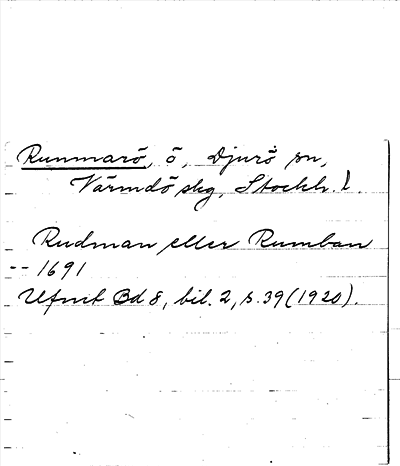 Runmarö, ö, Djurö sn,
Värmdö skg, Stockh. l.
Rudman eller Rumban
-- 1691
Ufmit Bd 8, bil. 2, s. 39 (1920).